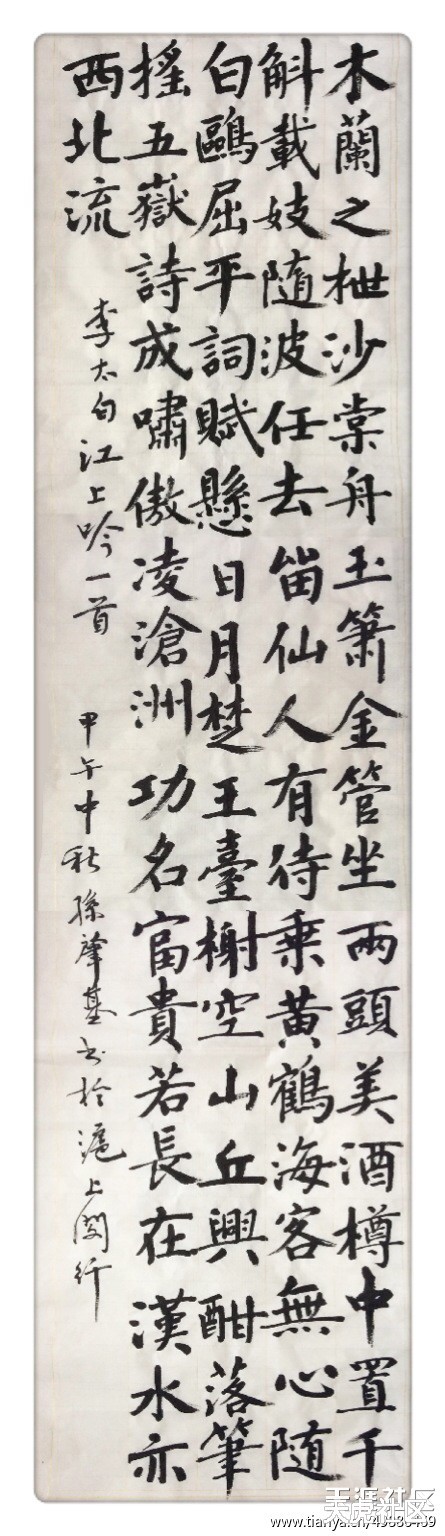 木蘭之枻沙棠舟玉簫金管坐兩頭美酒樽中置千
斛載妓隨波任去留仙人有待乘黄鶴海客無心隨
白鷗屈平詞賦懸日月楚王臺榭空山丘興酣落筆
搖五嶽詩成嘯傲凌滄洲功名富貴若長在漢水亦
西北流
李太白江上吟一首
甲午中秋孫肇基书於滬上閔行
天涯社区
www.tianya.cn/49686439